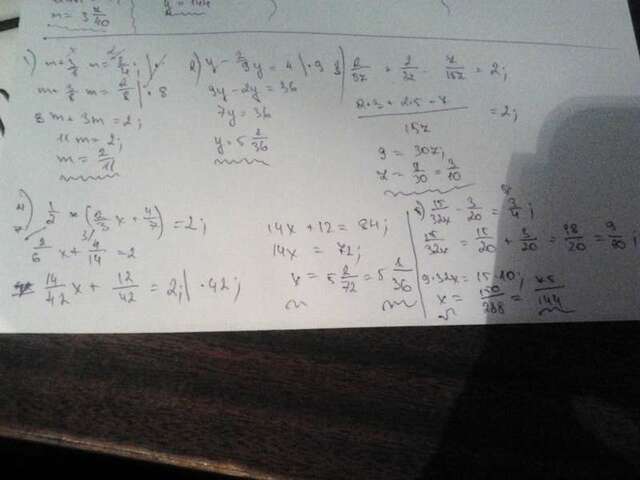 m = 3 x/40
1) m + 3/8 m = 2/8;
m + 3/8 m = 2/8 | · 8
8m + 3m = 2;
11m = 2;
m = 2/11
2) y - 2/9 y = 4 | · 9
9y - 2y = 36
7y = 36
y = 5 1/36
= 2;
= 2;
15z
9 = 30z;
z = 9/30 = 3/10
4) 1/2 * (2/3 x + 4/7) = 2;
2/6 x + 4/14 = 2
14/42 x + 12/42 = 2; | · 42;
14x + 12 = 84;
14x = 72;
x = 5 2/72 = 5 1/36
15/32x - 3/20 = 3/4;
15/32x = 15/20 + 3/20 = 18/20 = 9/10;
9·32x = 15·10;
x = 150/288 = 75/144